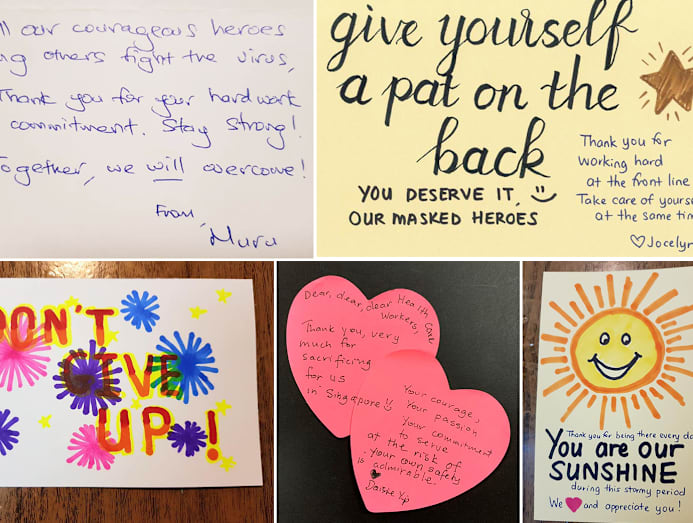 ll our courageous heroes
ng others fight the virus,
Thank you for your hard work
commitment. Stay strong!
Together, we will overcome!
From,
give yourself
a pat on the
back
YOU DESERVE IT,
OUR MASKED HEROES
Thank you for
working hard
at the front line
Take care of yourse
at the same tim
Jocelyn
DON'T
GIVE
UP!
Dear, dear, dear Health Care
Workers,
Thank you, very
much for
sacrificing
for us
in Singapore!!
Your courage,
Your passion
Your commitment
to serve
at the risk of
your own safety
is admirable.
Daiske Yip
Thank you for being there every da
You are our
SUNSHINE
during this stormy period
We and appreciate you!